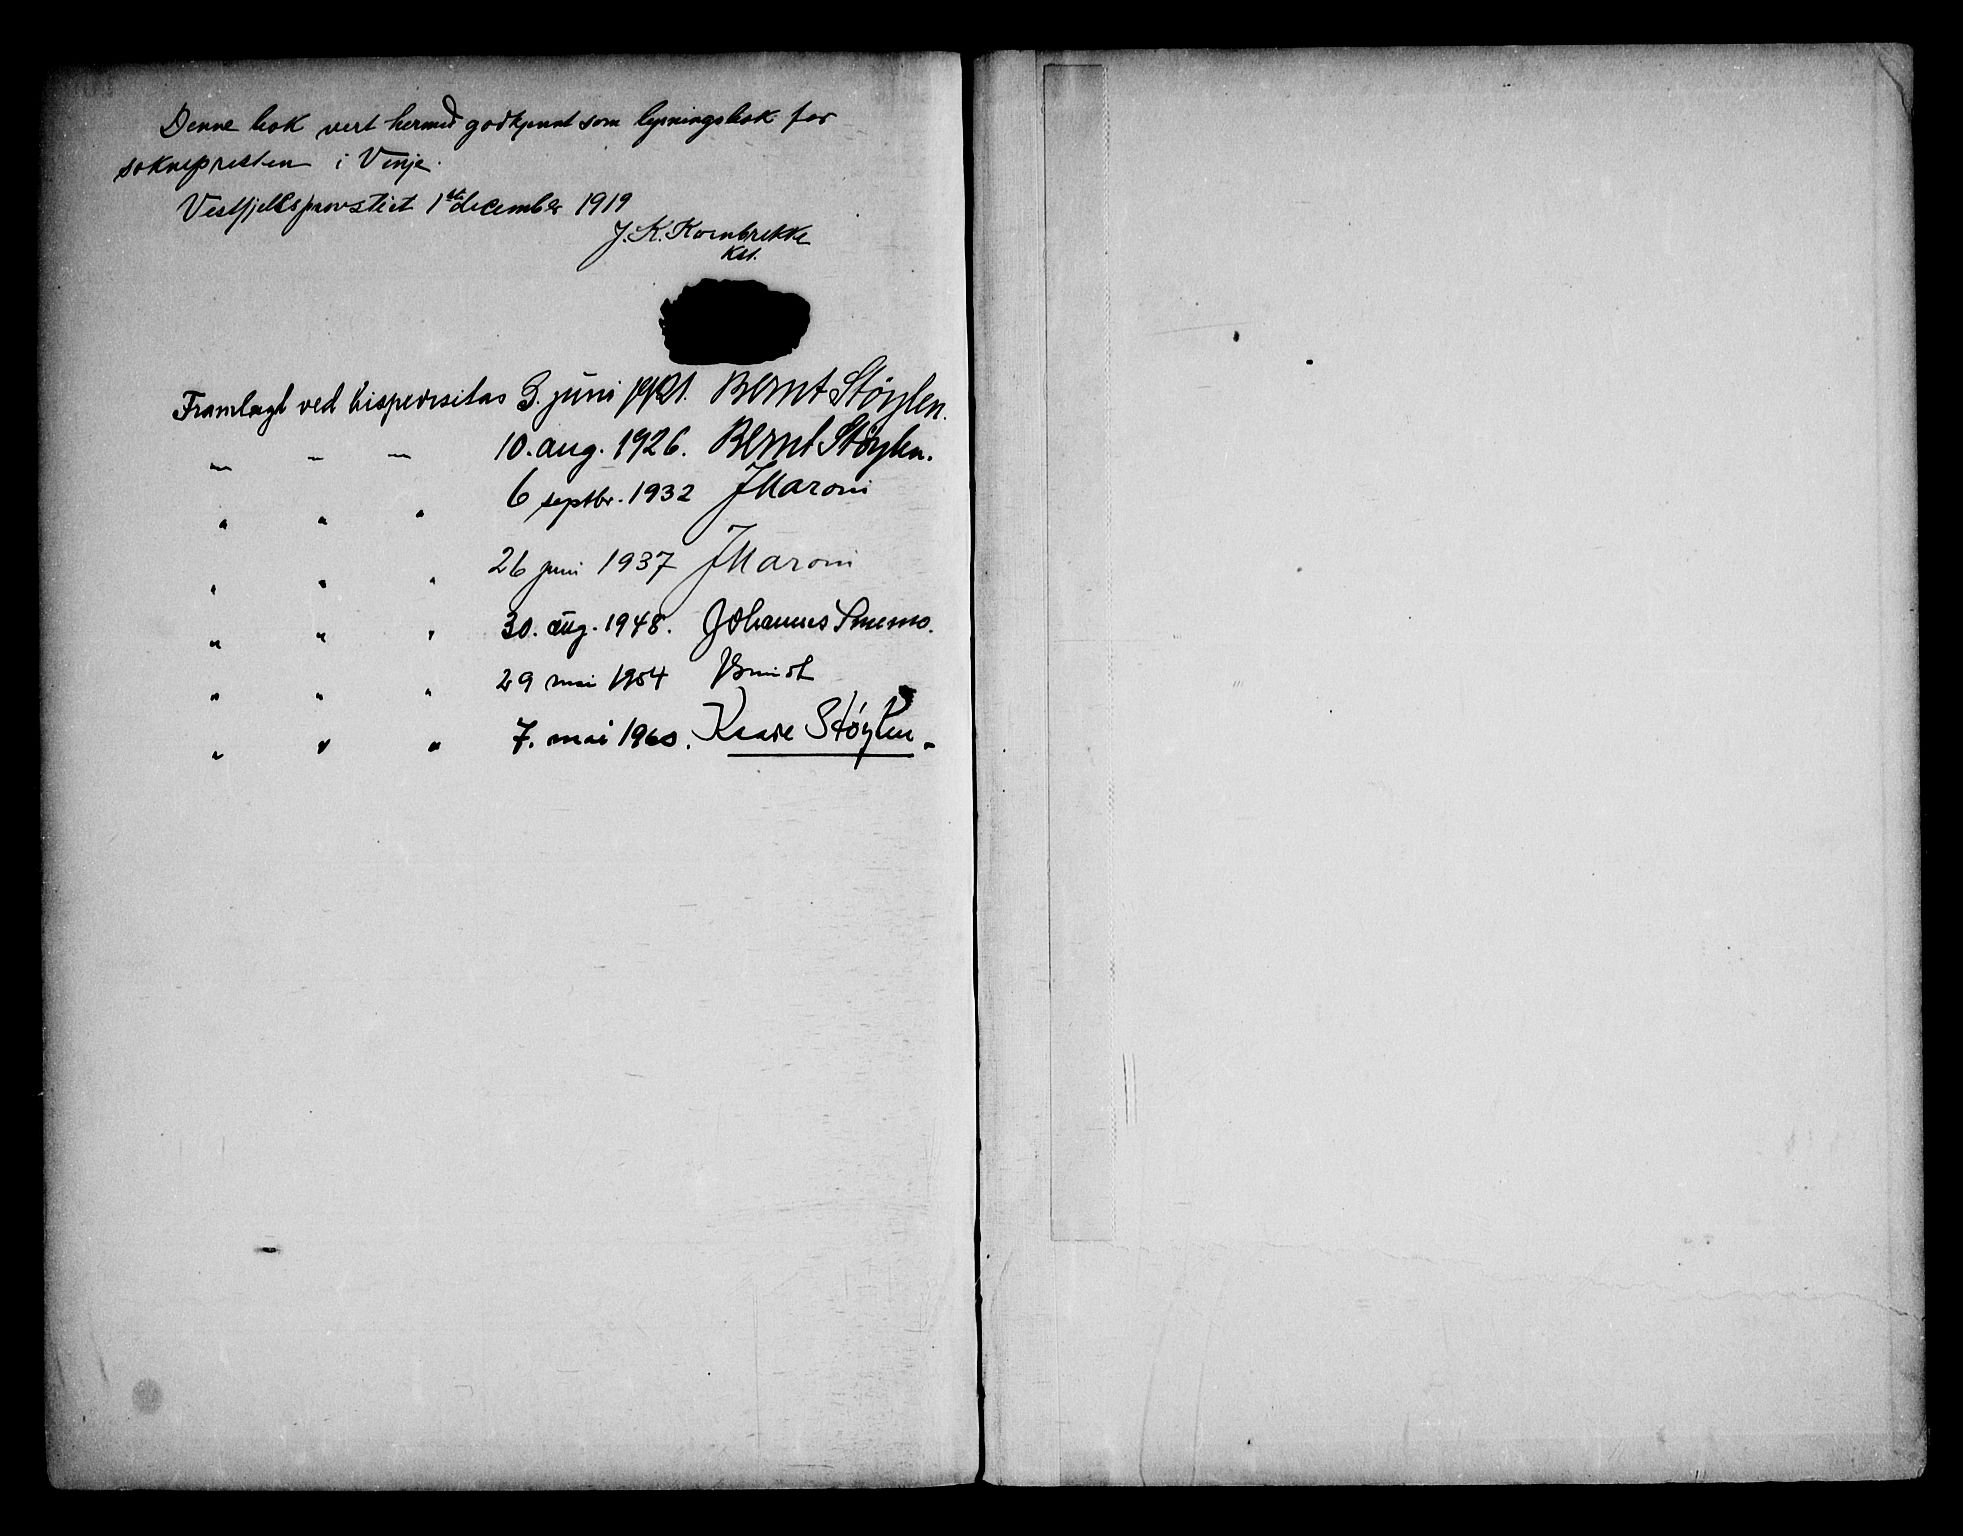 Denne bok vert hermed godkjennt som lysningsbok for
soknepresten i Vinje.
Vestfjellsprovstiet 1ste december 1919
J. K. Kornbrekke
Kst.
Framlagt ved bispevisitas 3. juni 1921. Bernt Støylen.
— — — 10. aug. 1926. Bernt Støylen.
" " " 6 septbr. 1932 J Maroni
" " " 26 juni 1937 J Maroni
" " " 30. aug. 1948. Johannes Smemo.
" " " 29 mai 1954
" " " 7. mai 1960. Kaare Støylen.